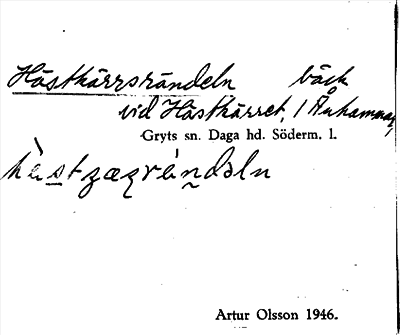 Hästkärrsrändeln bäck
vid Hästkärret, / Åkhammar,
Gryts sn. Daga hd. Söderm. l.
Artur Olsson 1946.